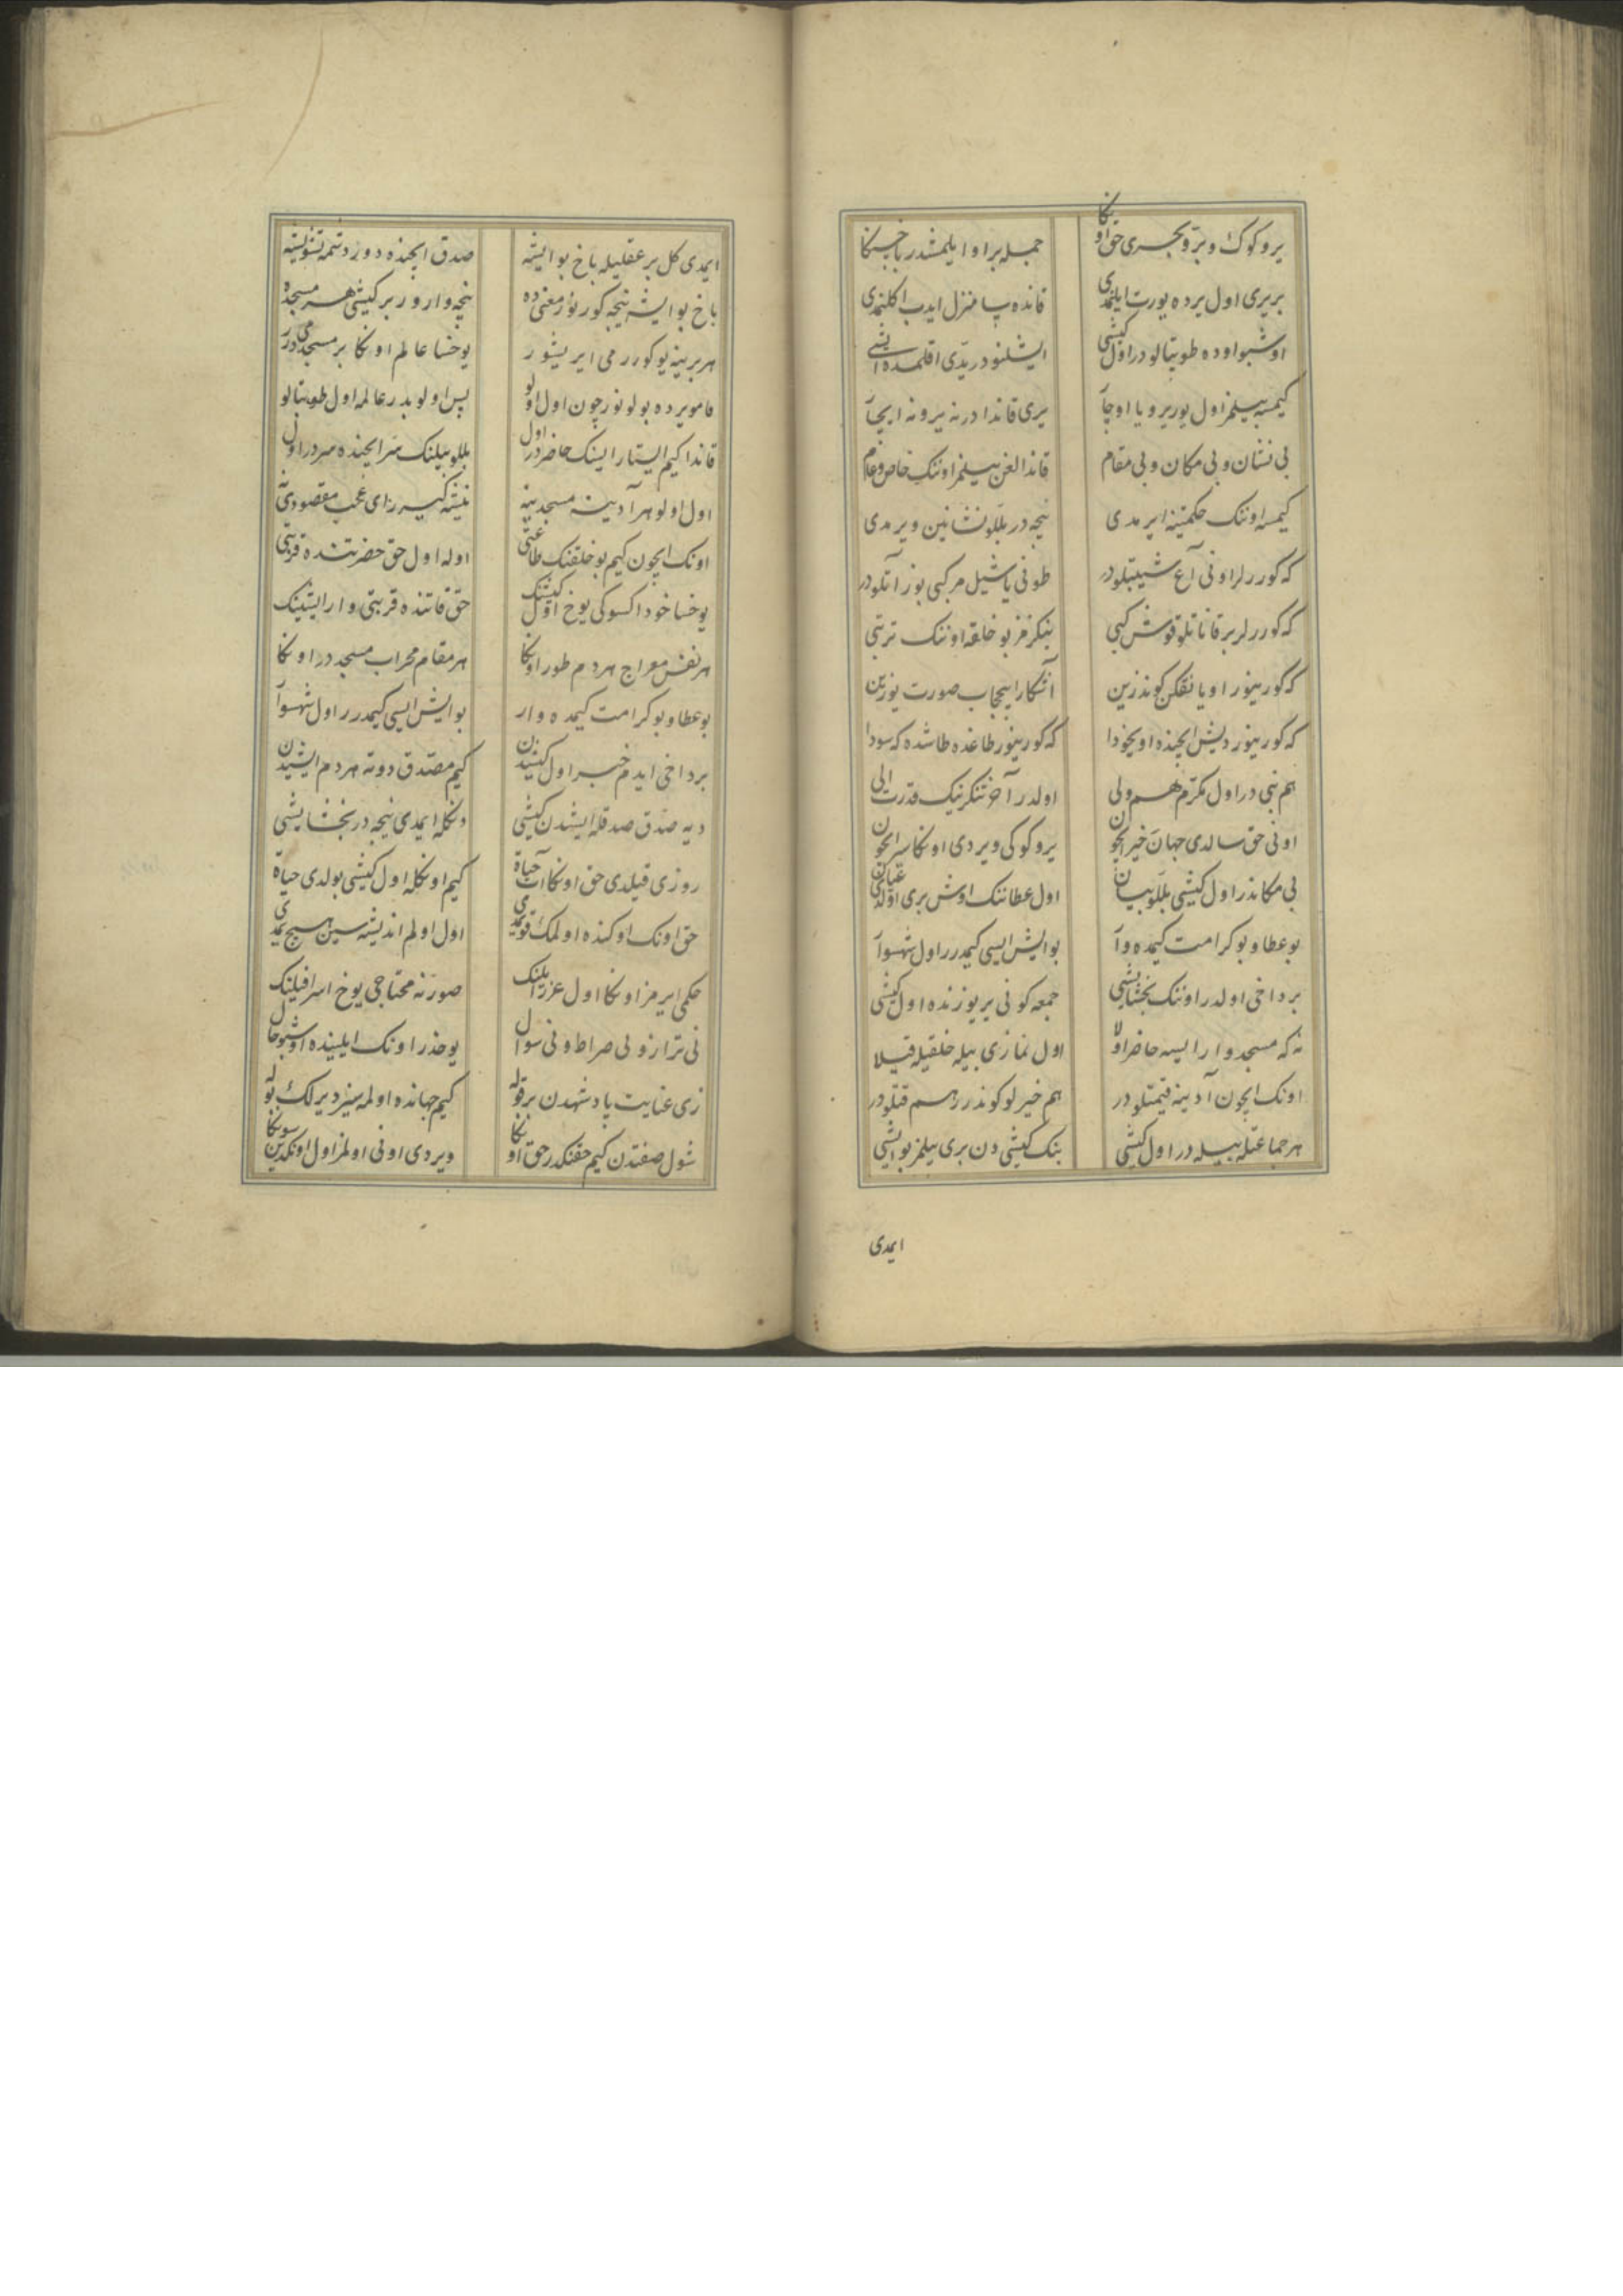 یر و کوک و برّ و بحری حق اونکا جمله بر او ایلمشدر باخسنکا
بر یری اول یرده یورت ایلمدی قانده یا منزل ایدب اکلنمدی
اوشبو اوده طوپتالودر اول کیشی ایشلنودر یدی اقلمده ایشی
کیمسه بیلمز اول یوریر و یا اوچآ یری قاندا در نه یر و نه ایچآ
بی نشان و بی مکان و بی مقام قاندالغن بیلمز اوننک خاص و عام
کیمسه اوننک حکمتینه ایرمدی نیجه در بللو نشانین ویرمدی
که کوررلر اونی آغ شیبتلودر طونی یاشیل مرکبی بوز آتلودر
که کوررلر بر قاناتلو قوش کبی بنکزمز بو خلقه اوننک ترتبی
که کورینور اویانقکن کوندزین آشکارا بیحجاب صورت یوزین
که کورینور دیش ایچنده اویخودا که کورینور طاغده طاشده که سودا
هم نبی در اول مکرّم هم ولی اولدر آخر تنکرینک قدرت الی
اونی حق سالدی جهانَ خیر ایچون یر و کوکی ویردی اونکا سیر ایچون
بی مکاندر اول کیشی بللو بیان اول عطاننک اوش بری اولدی عیان
بو عطا و بو کرامت کیمده وآ بو ایش ایسی کیمدرر اول شهسوآ
بر داخی اولدر اوننک بخشایشی جمعه کونی بر یوزنده اول کیشی
نه که مسجد وار ایسه حاضر اولا اول نمازی بیله خلقیله قیلا
اونک ایچون آدینه قیمتلودر هم خیرلو کوندرر هم قتلودر
هر جماعتله بیله در اول کیشی بنک کیشی دن بری بیلمز بو ایشی
ایمدی
ایمدی کل بر عقلیله باخ بو ایشه صدق ایچنده دوز دتمه تشویشه
باخ بو ایشه نیجه کورنور معنی ده نیجه وارور بر کیشی هر مسجده
هر برینه یوکورر می ایریشور یوخسا عالم اونکا بر مسجد می در
قامو یرده بولونور چون اول اولو پس اولو بدر عالمه اول طوپتالو
قاندا کیم ایستار ایسنک حاضر در اول بللو بیلنک سر ایچنده سر در اول
اول اولو هر آدینه مسجدینه نیشه کیرر ای عجب مقصودی نه
اونک ایچون کیم بو خلقنک طاعتی اوله اول حق حضرتنده قربتی
یوخسا خود اکسوکی یوخ اول کیشنک حق قاتنده قربتی وار ایشینک
هر نفس معراج هر دم طور اونکا هر مقام محراب مسجد در اونکا
بو عطا و بو کرامت کیمده وار بو ایش ایسی کیمدرر اول شهسوآ
بر داخی ایدم خبر اول کیشیدن کیم مصدق دوته هر دم ایشیدن
دیه صدّق صدقله ایشدن کیشی دنکله ایمدی نیجه در بخشایشی
روزی قیلدی حق اونکا آب حیاة کیم اونکله اول کیشی بولدی حیاة
حق اونک اوکنده اولمک قویمدی اول اولم اندیشه سین هیچ یمدی
حکمی ایرمز اونکا اول عزرایلنک صورنه محتاجی یوخ اسرافیلنک
نی ترازو نی صراط و نی سوال یوخدر اونک ایلینده اوشبو حال
زی عنایت پادشهدن بر قوله کیم جهانده اولمه سیز دیرلک بوله
شول صفتدن کیم حقنکدر حق اونکا ویردی اونی اولمز اول اونکدین سونکا